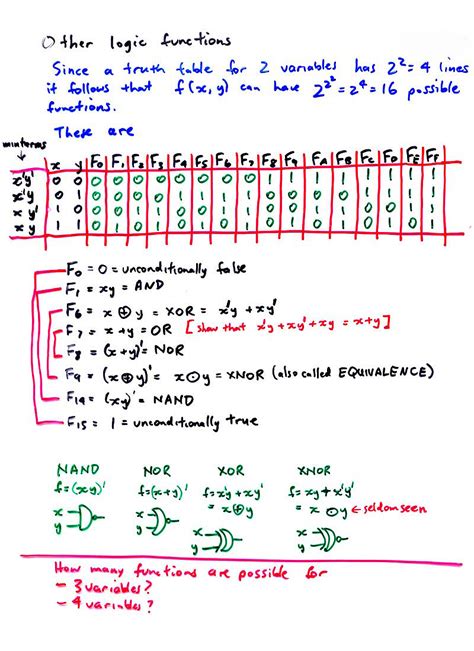 Other logic functions
Since a truth table for 2 variables has 2² = 4 lines
it follows that f(x, y) can have 2^2² = 2⁴ = 16 possible
functions.
These are
minterms
x y F₀ F₁ F₂ F₃ F₄ F₅ F₆ F₇ F₈ F₉ FA FB FC FD FE FF
x'y' 0 0 0 0 0 0 0 0 0 0 1 1 1 1 1 1 1 1
x'y 0 1 0 0 0 0 1 1 1 1 0 0 0 0 1 1 1 1
xy' 1 0 0 0 1 1 0 0 1 1 0 0 1 1 0 0 1 1
xy 1 1 0 1 0 1 0 1 0 1 0 1 0 1 0 1 0 1
F₀ = 0 = unconditionally false
F₁ = xy = AND
F₆ = x ⊕ y = XOR = x'y + xy'
F₇ = x + y = OR [show that x'y + xy' + xy = x + y]
F₈ = (x+y)' = NOR
F₉ = (x⊕y)' = x⊙y = XNOR (also called EQUIVALENCE)
F₁₄ = (xy)' = NAND
F₁₅ = 1 = unconditionally true
NAND NOR XOR XNOR
f=(xy)' f=(x+y)' f=x'y+xy' f=xy+x'y'
= x⊕y = x⊙y ← seldom seen
x x x x
y y y y
How many functions are possible for
- 3 variables?
- 4 variables?